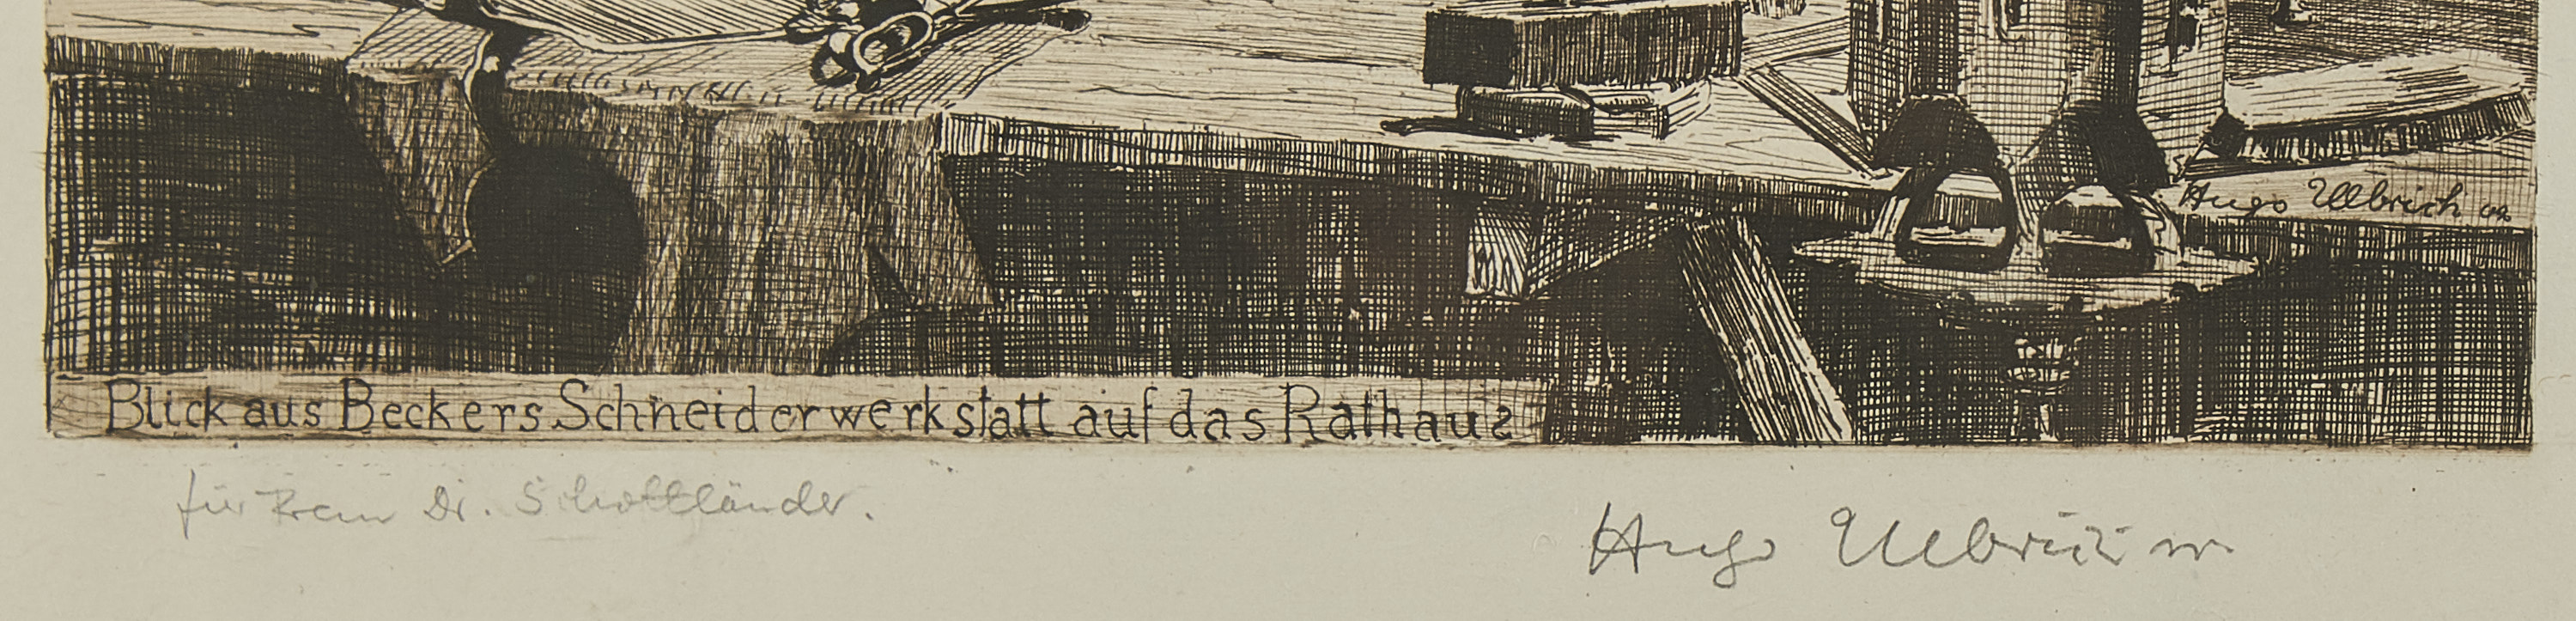 Hugo Ulbrich
Blick aus Beckers Schneiderwerkstatt auf das Rathaus
für Frau Dr. Schottländer.
Hugo Ulbrich